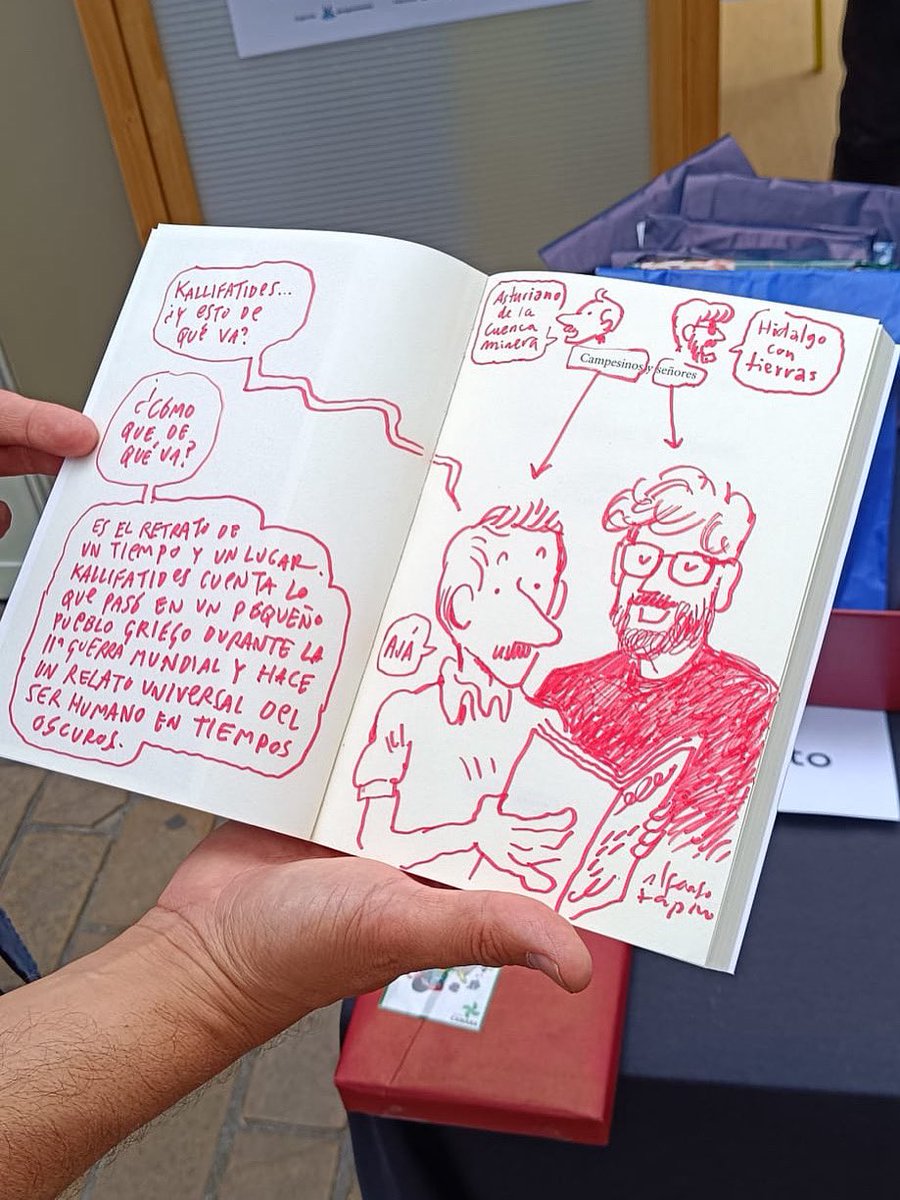 KALLIFATIDES...
¿Y ESTO DE
QUÉ VA?
¿CÓMO
QUE DE
QUÉ VA?
ES EL RETRATO DE
UN TIEMPO Y UN LUGAR.
KALLIFATIDES CUENTA LO
QUE PASÓ EN UN PEQUEÑO
PUEBLO GRIEGO DURANTE LA
IIª GUERRA MUNDIAL Y HACE
UN RELATO UNIVERSAL DEL
SER HUMANO EN TIEMPOS
OSCUROS.
Asturiano
de la
cuenca
minera
Hidalgo
con
tierras
Campesinos y señores
AJÁ